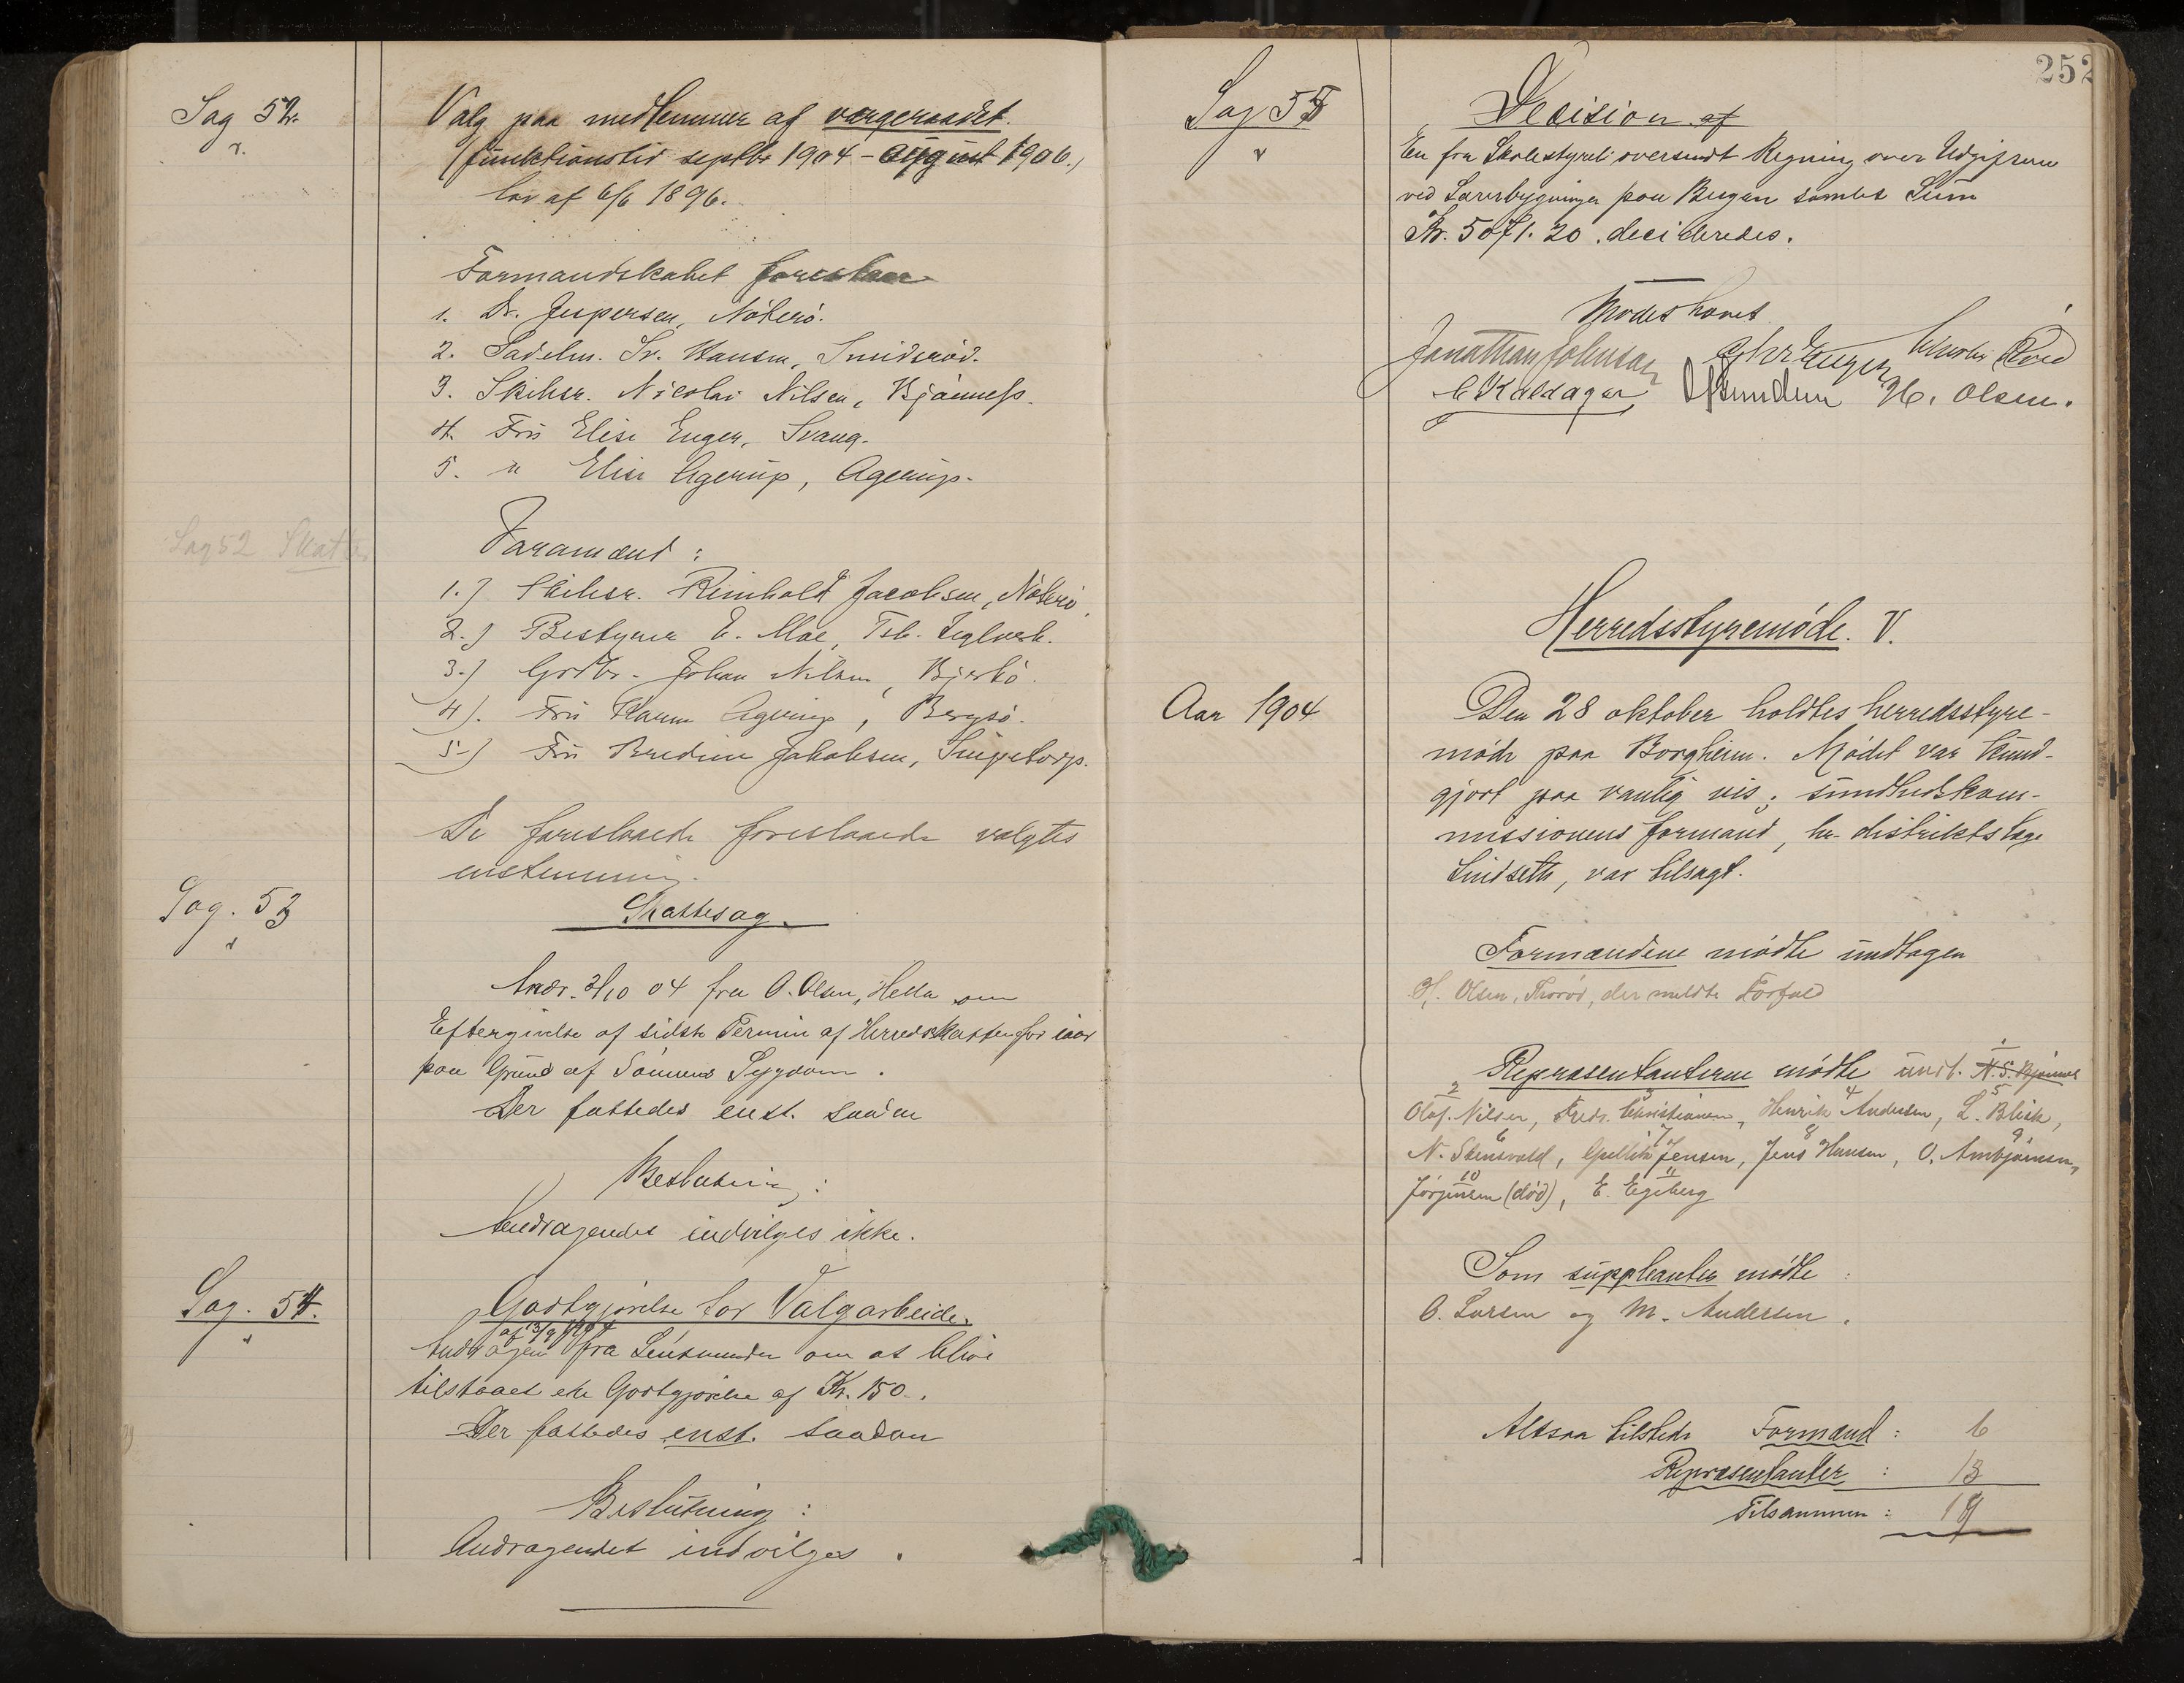 Sag 52.
v.
Valg paa medlemmer af værgeraadet.
(funktionstid septbr 1904 - august 1906.)
lov af 6/6 1896.
Formandskabet foreslaar
1. Dr. Jespersen, Nøterø.
2. Sadelm. Sv. Hansen, Smidsrød.
3. Skibsr. Nicolai Nilsen, Bjønness.
4. Fru Elise Enger, Svang.
5. " Elise Agerup, Agerup.
Sag 52 Skatte
Varamænd:
1.) Skibsr. Reinhold Jacobsen, Nøterø
2.) Bestyrer E. Moe, Tsb. Teglverk.
3.) Grdbr. Johan Nilsen, Bjerkø.
4). Fru Karen Agerup, Bergsø.
5.) Fru Bredine Jakobsen, Snipetorp.
De foreslaaede foreslaaede valgtes
enstemmig.
Sag. 53
v
Skattesag.
Andr. 3/10 04 fra O. Olsen, Hella om
Eftergivelse af sidste Termin af Herredsskatten for iaar
paa Grund af Sønnens Sygdom.
Der fattedes enst. saadan
Beslutning:
Andragendet indvilges ikke.
Sag. 54.
v
Godtgjørelse for Valgarbeide.
af 13/9 1904
Andragen fra Lensmanden om at blive
tilstaaet en Godtgjørelse af Kr. 150.
Der fattedes enst. saadan
Beslutning:
Andragendet indvilges.
252
Sag 55
v
Decision af
En fra Skolestyret oversendt Regning over Udgifterne
ved Lærerbygningen paa Bugen samlet Sum
Kr. 5071.20. decideredes.
Mødet hævet
Jonathan Johnsen Chr Enger
C Kaldager H. Olsen.
Herredsstyremøde. V.
Aar 1904
Den 28 oktober holdtes herredsstyre-
møde paa Borgheim. Mødet var kund-
gjort paa vanlig vis; sundhedskom-
missionens formand, hr. distriktslæge
Lindseth, var tilsagt.
Formændene mødte undtagen
H. Olsen, Thorød, der meldte Forfald
1
Repræsentanterne mødte undt. N. S. Bjønnes
2 3 4 5
Olaf. Nilsen, Fredr. Christiansen, Henrik Andersen, L. Blich,
6 7 8 9
N. Stensvold, Gullik Jensen, Jens Hansen, O. Ambjørnsen,
10 11
Jørgensen (død), E. Egeberg
Som suppleanter mødte:
O. Larsen og M. Andersen.
Altsaa tilstede Formænd: 6
Repræsentanter: 13
Tilsammen: 19